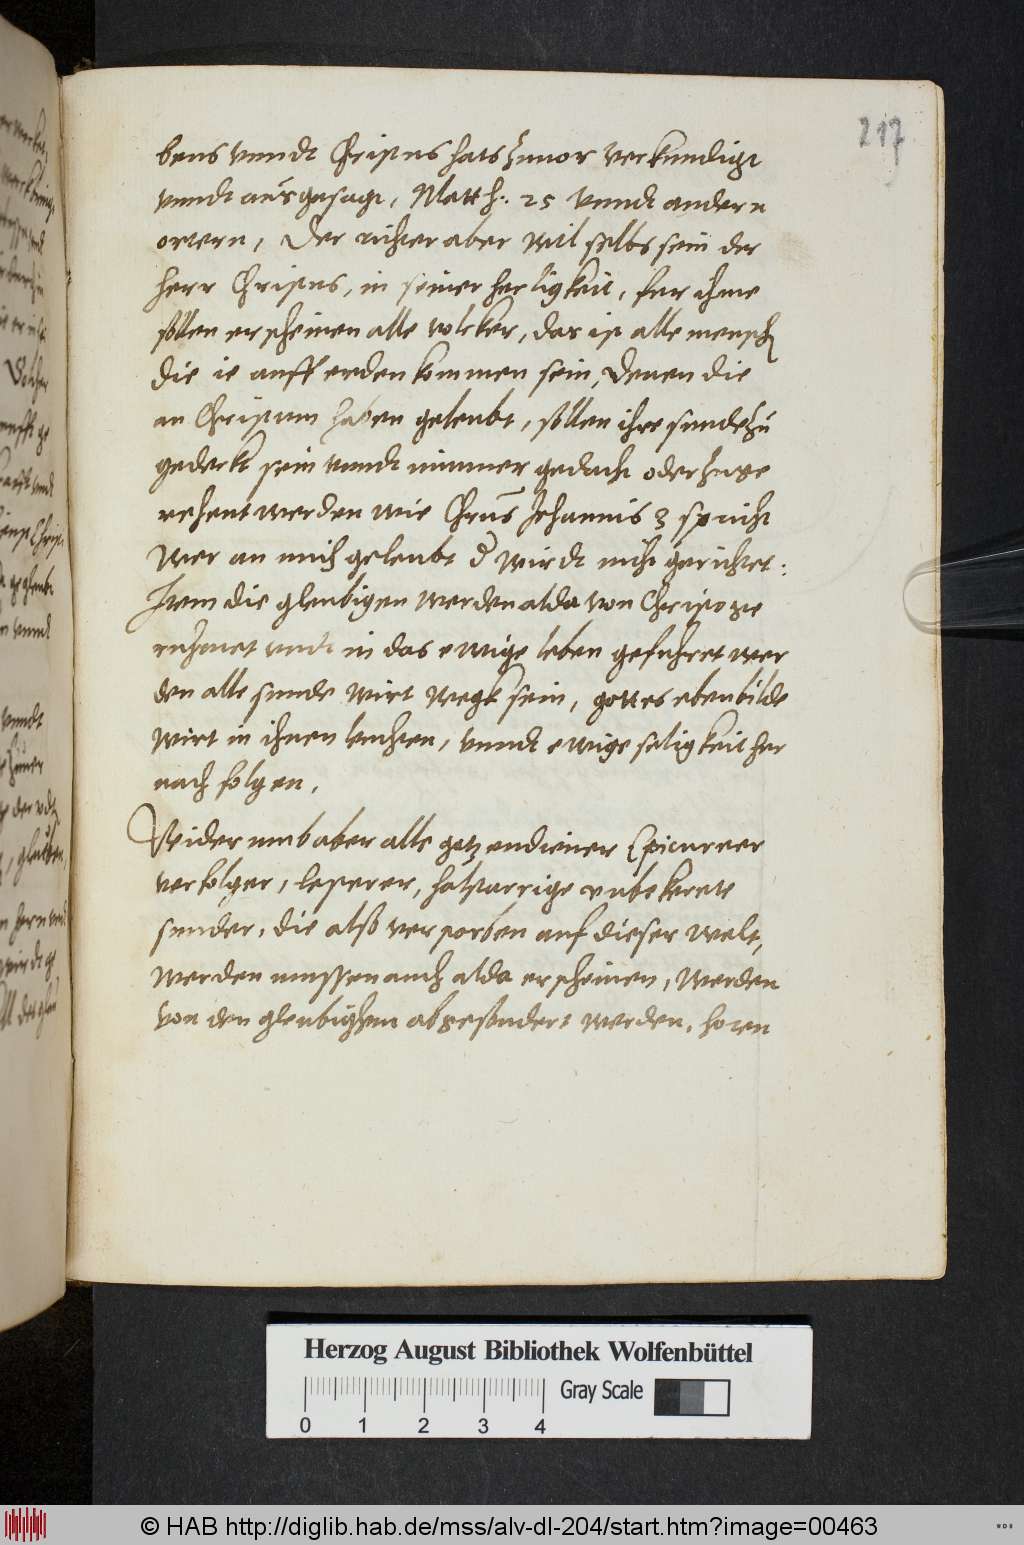 217
bens vnndt Christus hats zuuor verkundigt
vnndt ausgesagt, Matth. 25 vnndt andern
ortern, Der richter aber wil selbs sein der
herr Christus, in seiner herligkeit, fur ihme
sollen erscheinen alle volcker, das ist alle mensch
die ie auff erden kommen sein, Denen die
an Christum haben geleubt, sollen ihre sunde zu
gedeckt sein vnndt nimmer gedacht oder zuge
rehent werden wie Chrus Johannis 3 spricht
Wer an mich geleubt d wirdt nicht gerichtet:
Item die gleubigen werden alda von Christo ge
ruhmet vndt in das ewige leben gefuhret wer
den alle sunde wirt wegk sein, gottes ebenbilde
wirt in ihnen leuchten, vnndt ewige seligkeit her
nach folgen.
Widerumb aber alle gotzendiener Epicureer
verfolger, lesterer, halstarrige vnbekerete
sunder, die also verstorben auf dieser welt,
werden mussen auch alda erscheinen, werden
von den gleubighen abgesondert werden, horen
Herzog August Bibliothek Wolfenbüttel
Gray Scale
0 1 2 3 4
© HAB http://diglib.hab.de/mss/alv-dl-204/start.htm?image=00463